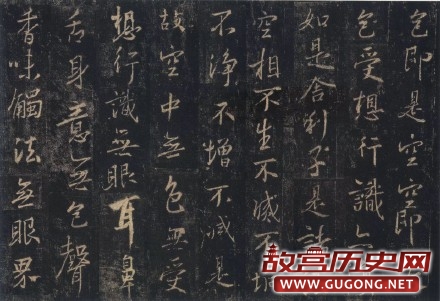 色即是空空即
色受想行識亦
如是舍利子是諸
空相不生不滅不垢
不淨不增不減是
故空中无色無受
想行識無眼耳鼻
舌身意无色聲
香味觸法無眼界
故宫历史网
WWW.GUGONG.NET